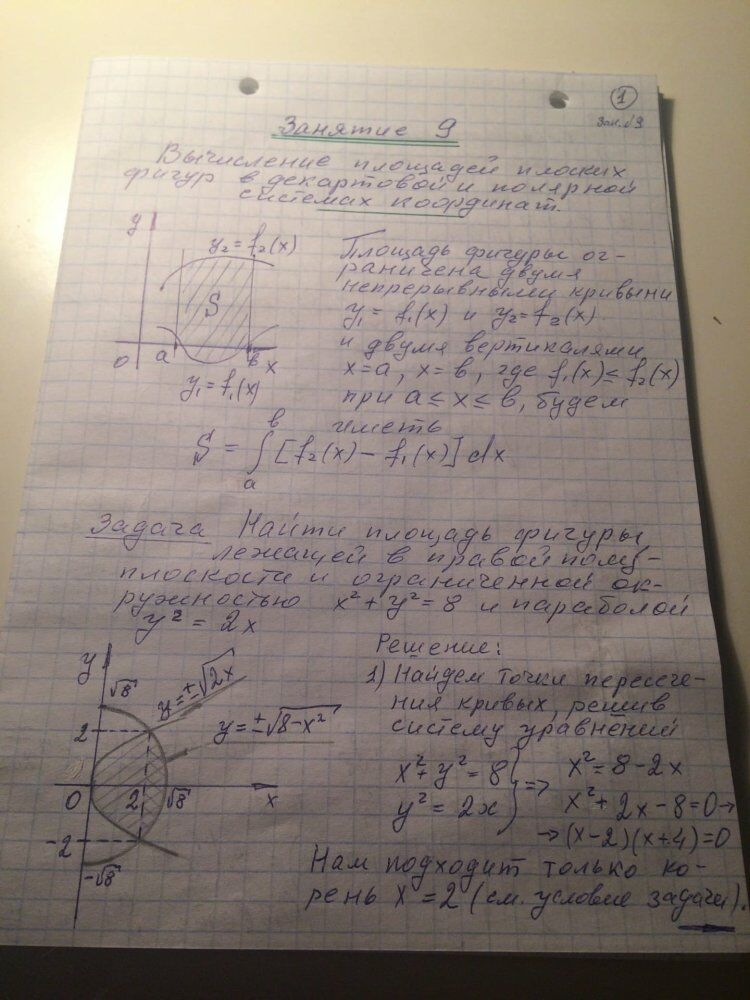 1
Зан. №9
Занятие 9
Вычисление площадей плоских
фигур в декартовой и полярной
системах координат.
y
y₂ = f₂(x)
S
0 a в x
y₁ = f₁(x)
Площадь фигуры ог-
раничена двумя
непрерывными кривыми
y₁ = f₁(x) и y₂ = f₂(x)
и двумя вертикалями
x=a, x=в, где f₁(x) ≤ f₂(x)
при a ≤ x ≤ в, будем
иметь
S = ∫ₐᵇ [f₂(x) − f₁(x)] dx
Задача Найти площадь фигуры,
лежащей в правой полу-
плоскости и ограниченной ок-
ружностью x² + y² = 8 и параболой
y² = 2x
y
√8
y = ±√2x
2
y = ±√8−x²
0 2 √8 x
−2
−√8
Решение:
1) Найдем точки пересече-
ния кривых, решив
систему уравнений
x² + y² = 8
y² = 2x } =>
x² = 8 − 2x
x² + 2x − 8 = 0 →
→ (x−2)(x+4) = 0
Нам подходит только ко-
рень x = 2 (см. условие задачи).